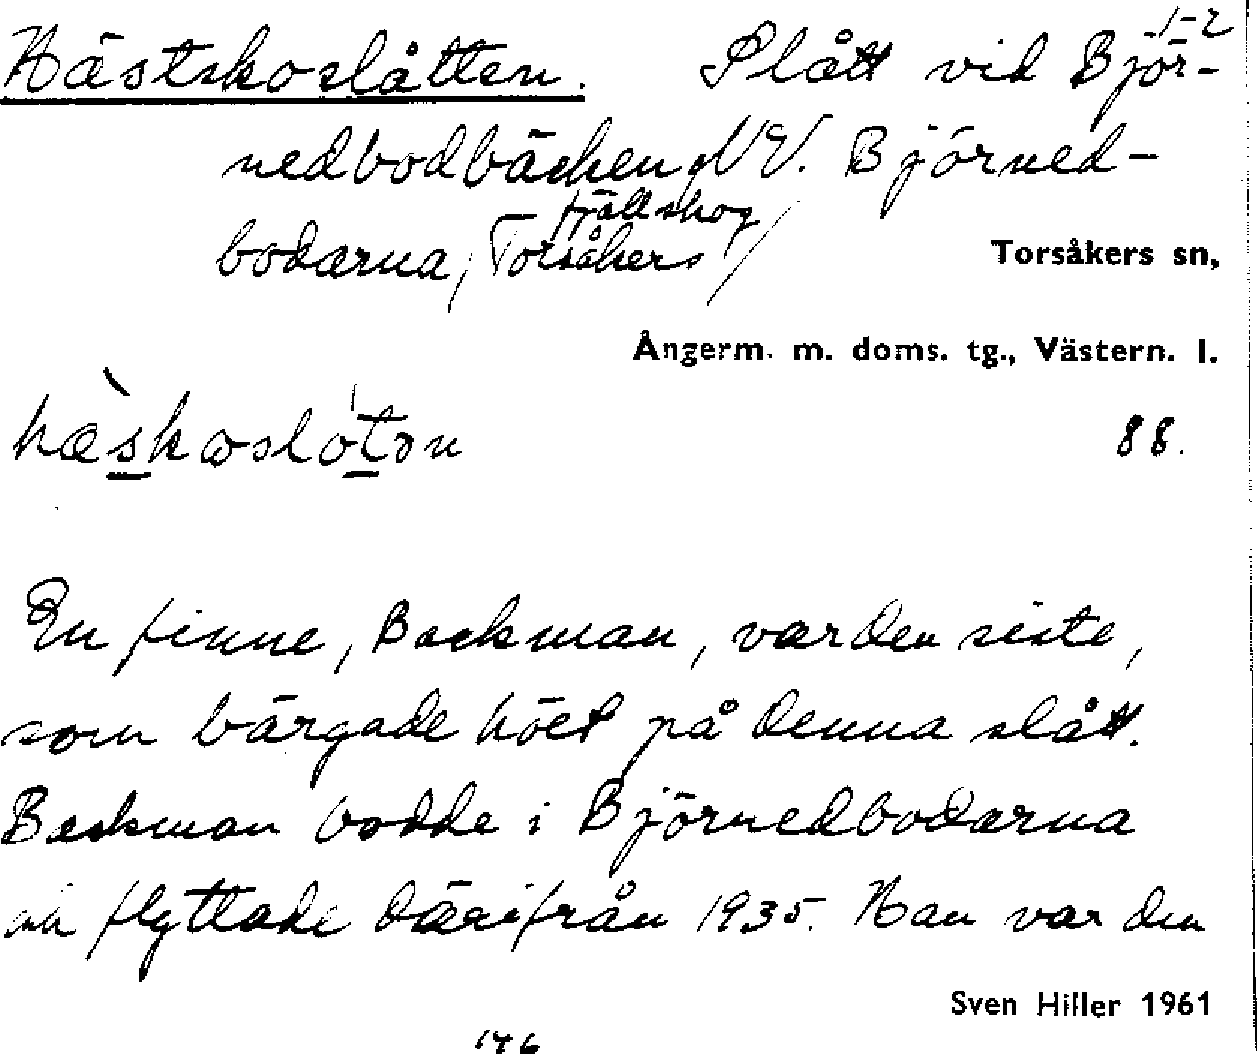 1-2
Hästskoslåtten. Slått vid Björ-
nedbodbäcken, NV. Björned-
fjällskog
bodarna, Torsåkers Torsåkers sn,
Ångerm. m. doms. tg., Västern. l.
hæskoslotən 88.
En finne, Backman, var den siste,
som bärgade höet på denna slått.
Backman bodde i Björnedbodarna
och flyttade därifrån 1935. Han var den
Sven Hiller 1961
146